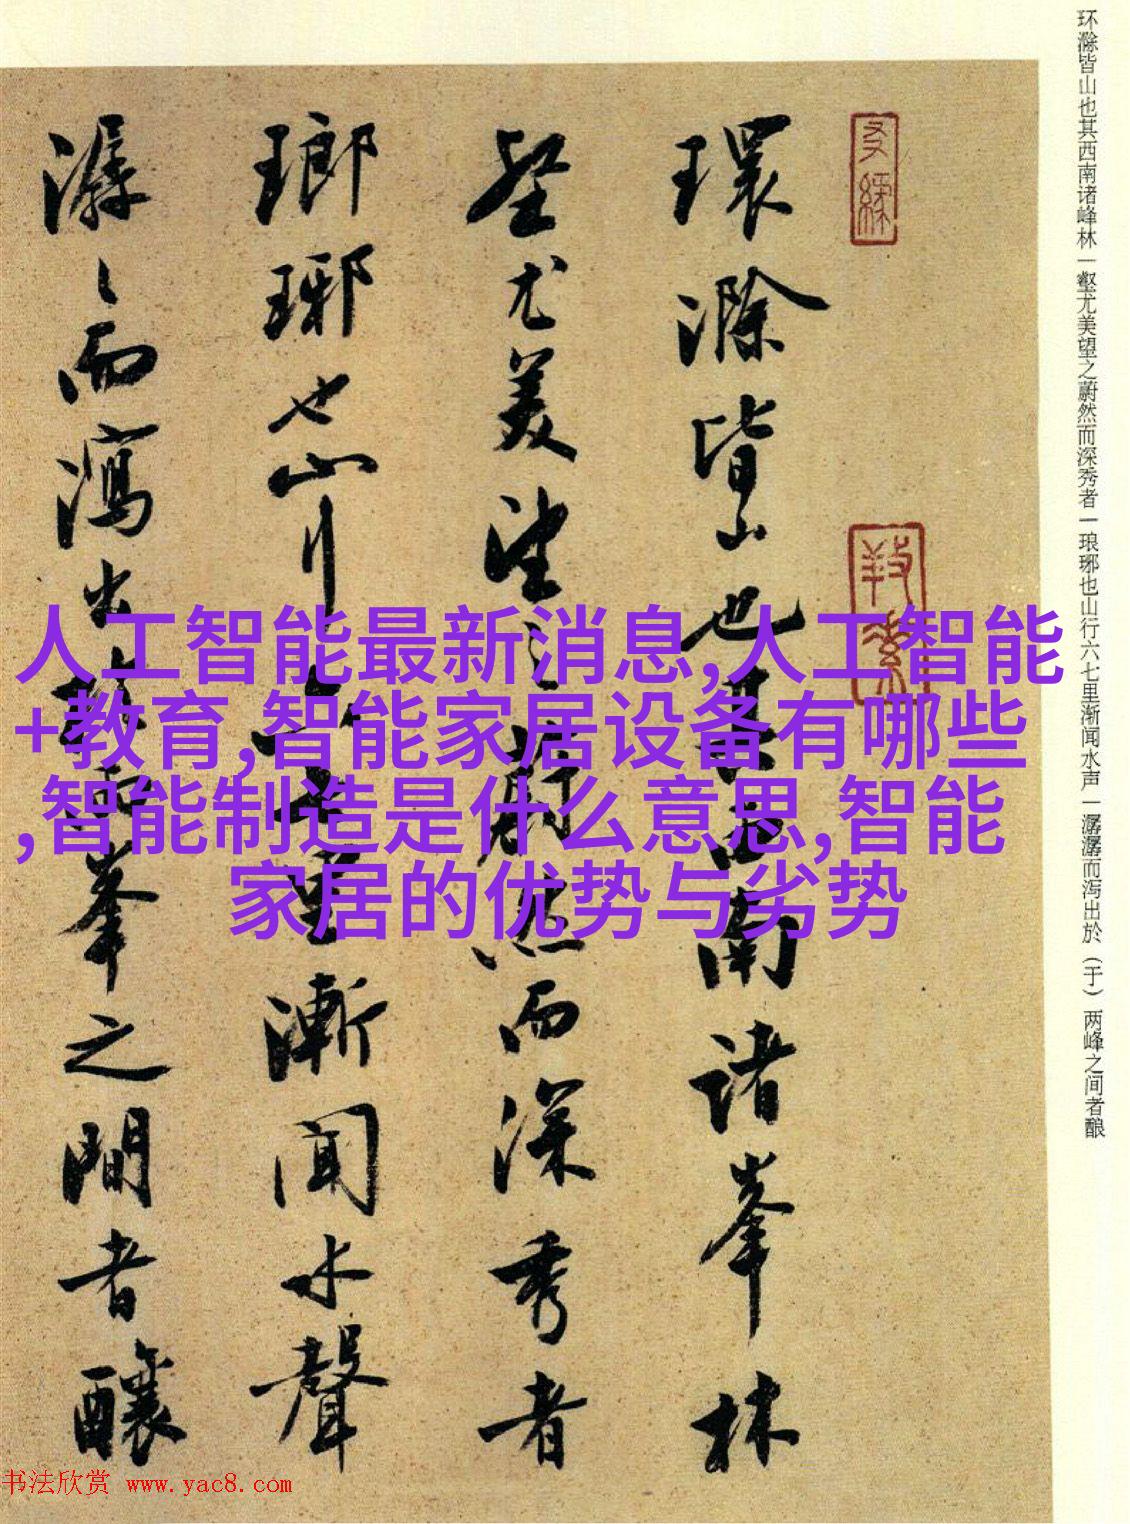 环滁皆山也其西南诸峰林一壑尤美望之蔚然而深秀者一琅琊也山行六七里渐闻水声一潺潺而泻出於（于）两峰之间者酿
環滁皆山也其西南諸峯林
壑尤美望之蔚然而深秀者
瑯琊也山行六七里漸聞水聲
潺〻而瀉出於兩峯之間者釀
人工智能最新消息,人工智能
+教育,智能家居设备有哪些
,智能制造是什么意思,智能
家居的优势与劣势
书法欣赏 www.yac8.com